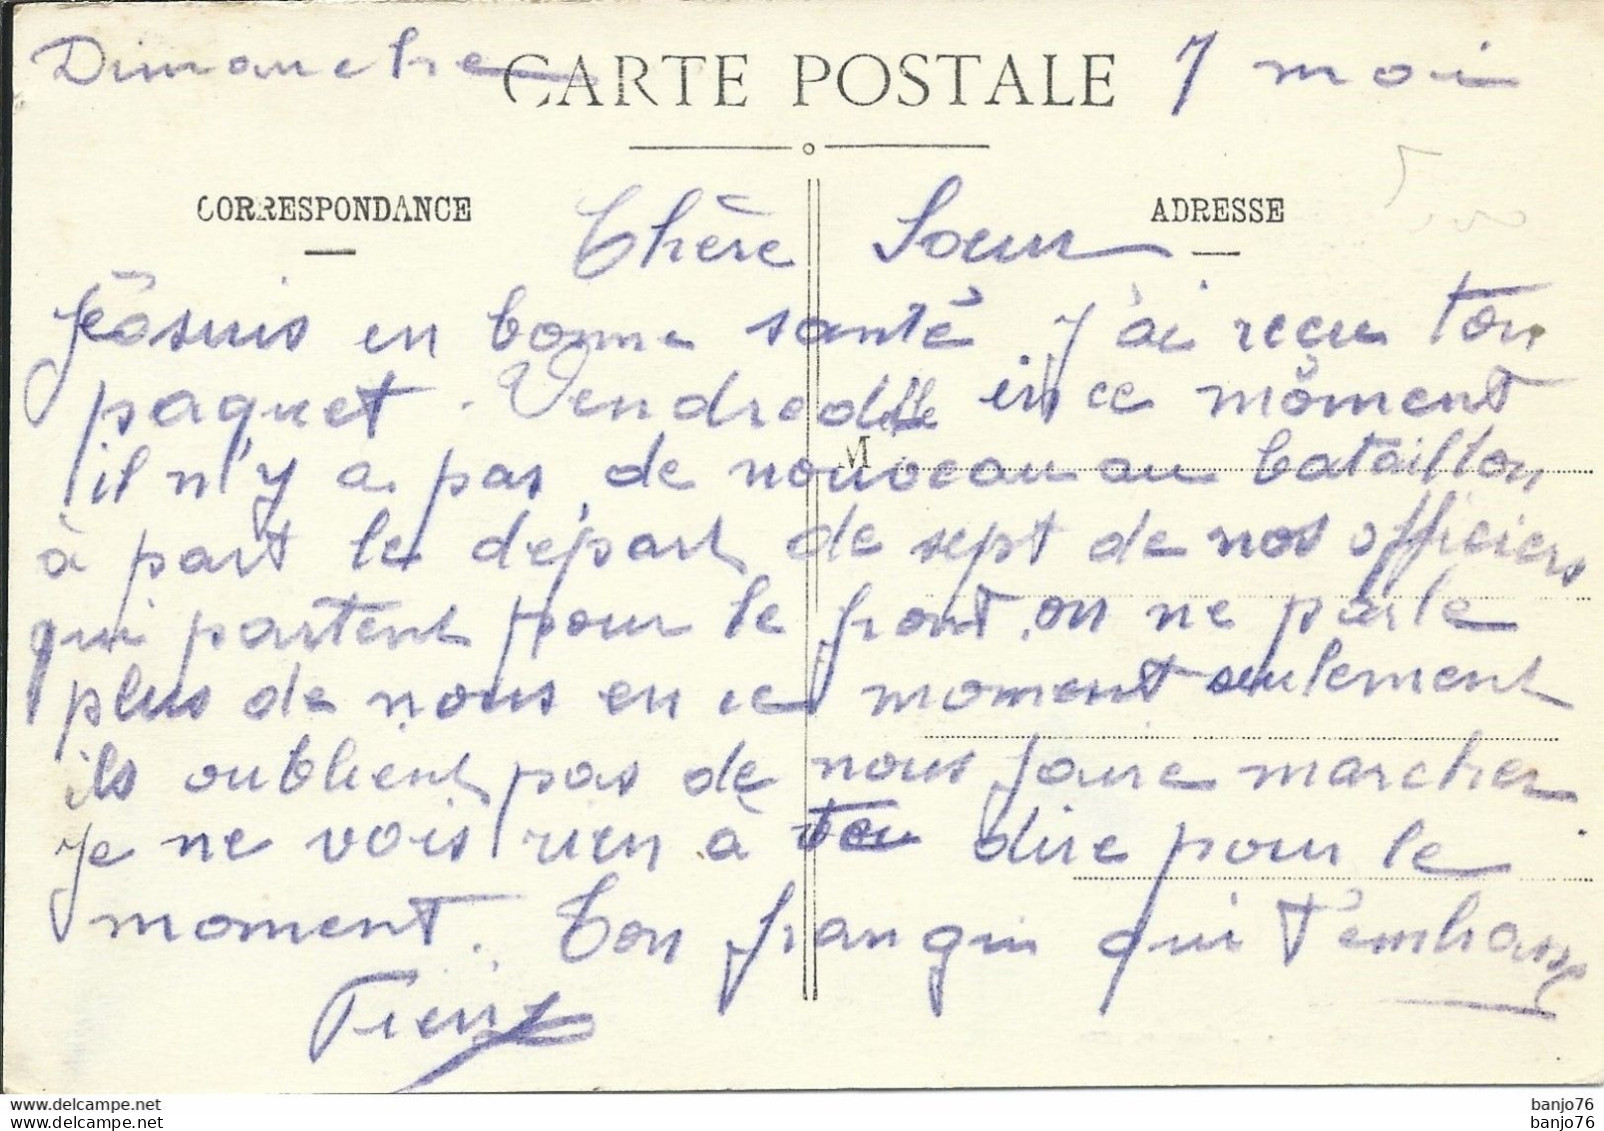 Dimanche CARTE POSTALE 7 mai
CORRESPONDANCE ADRESSE
Chère Soeur
Je suis en bonne santé j'ai reçu ton
paquet. Vendredi en ce moment
M
il n'y a pas de nouveau au bataillon
à part le départ de sept de nos officiers
qui partent pour le front, on ne parle
plus de nous en ce moment seulement
ils oublient pas de nous faire marcher
je ne vois rien à te dire pour le
moment. Ton frangin qui t'embrasse
delcampe.net
delcampe.net
banjo76
banjo76